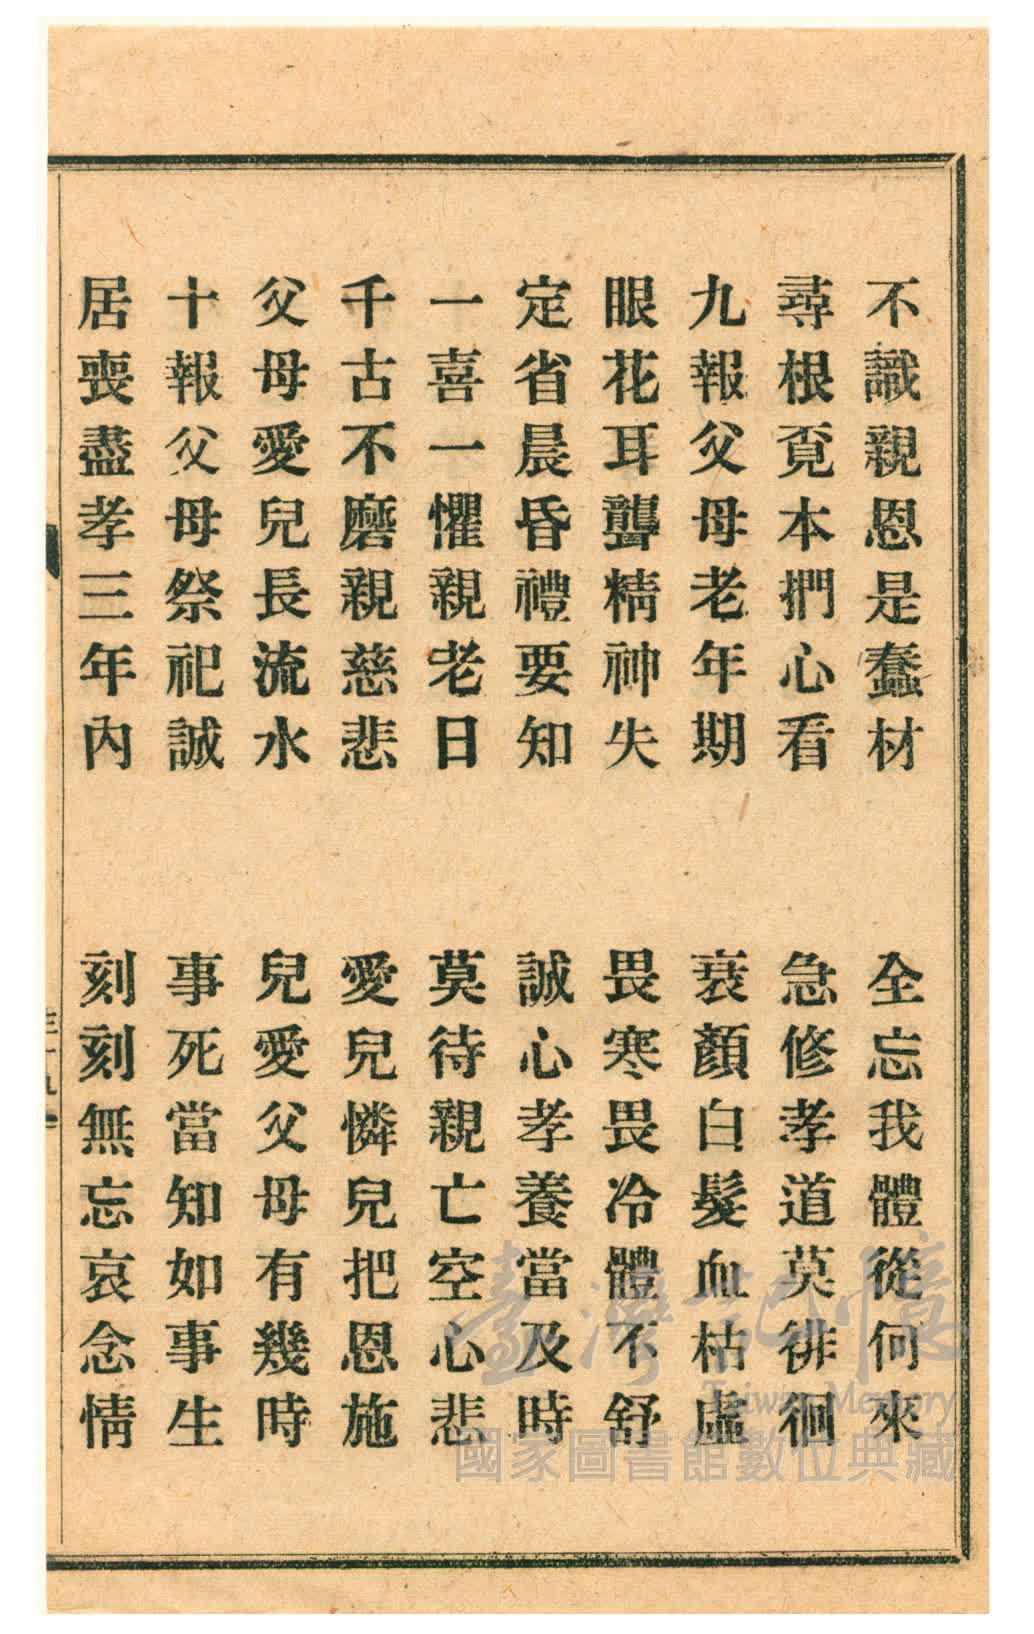 不識親恩是蠢材　全忘我體從何來
尋根覓本捫心看　急修孝道莫徘徊
九報父母老年期　衰顏白髮血枯虛
眼花耳聾精神失　畏寒畏冷體不舒
定省晨昏禮要知　誠心孝養當及時
一喜一懼親老日　莫待親亡空心悲
千古不磨親慈悲　愛兒憐兒把恩施
父母愛兒長流水　兒愛父母有幾時
十報父母祭祀誠　事死當知如事生
居喪盡孝三年內　刻刻無忘哀念情
臺灣記憶
Taiwan Memory
國家圖書館數位典藏